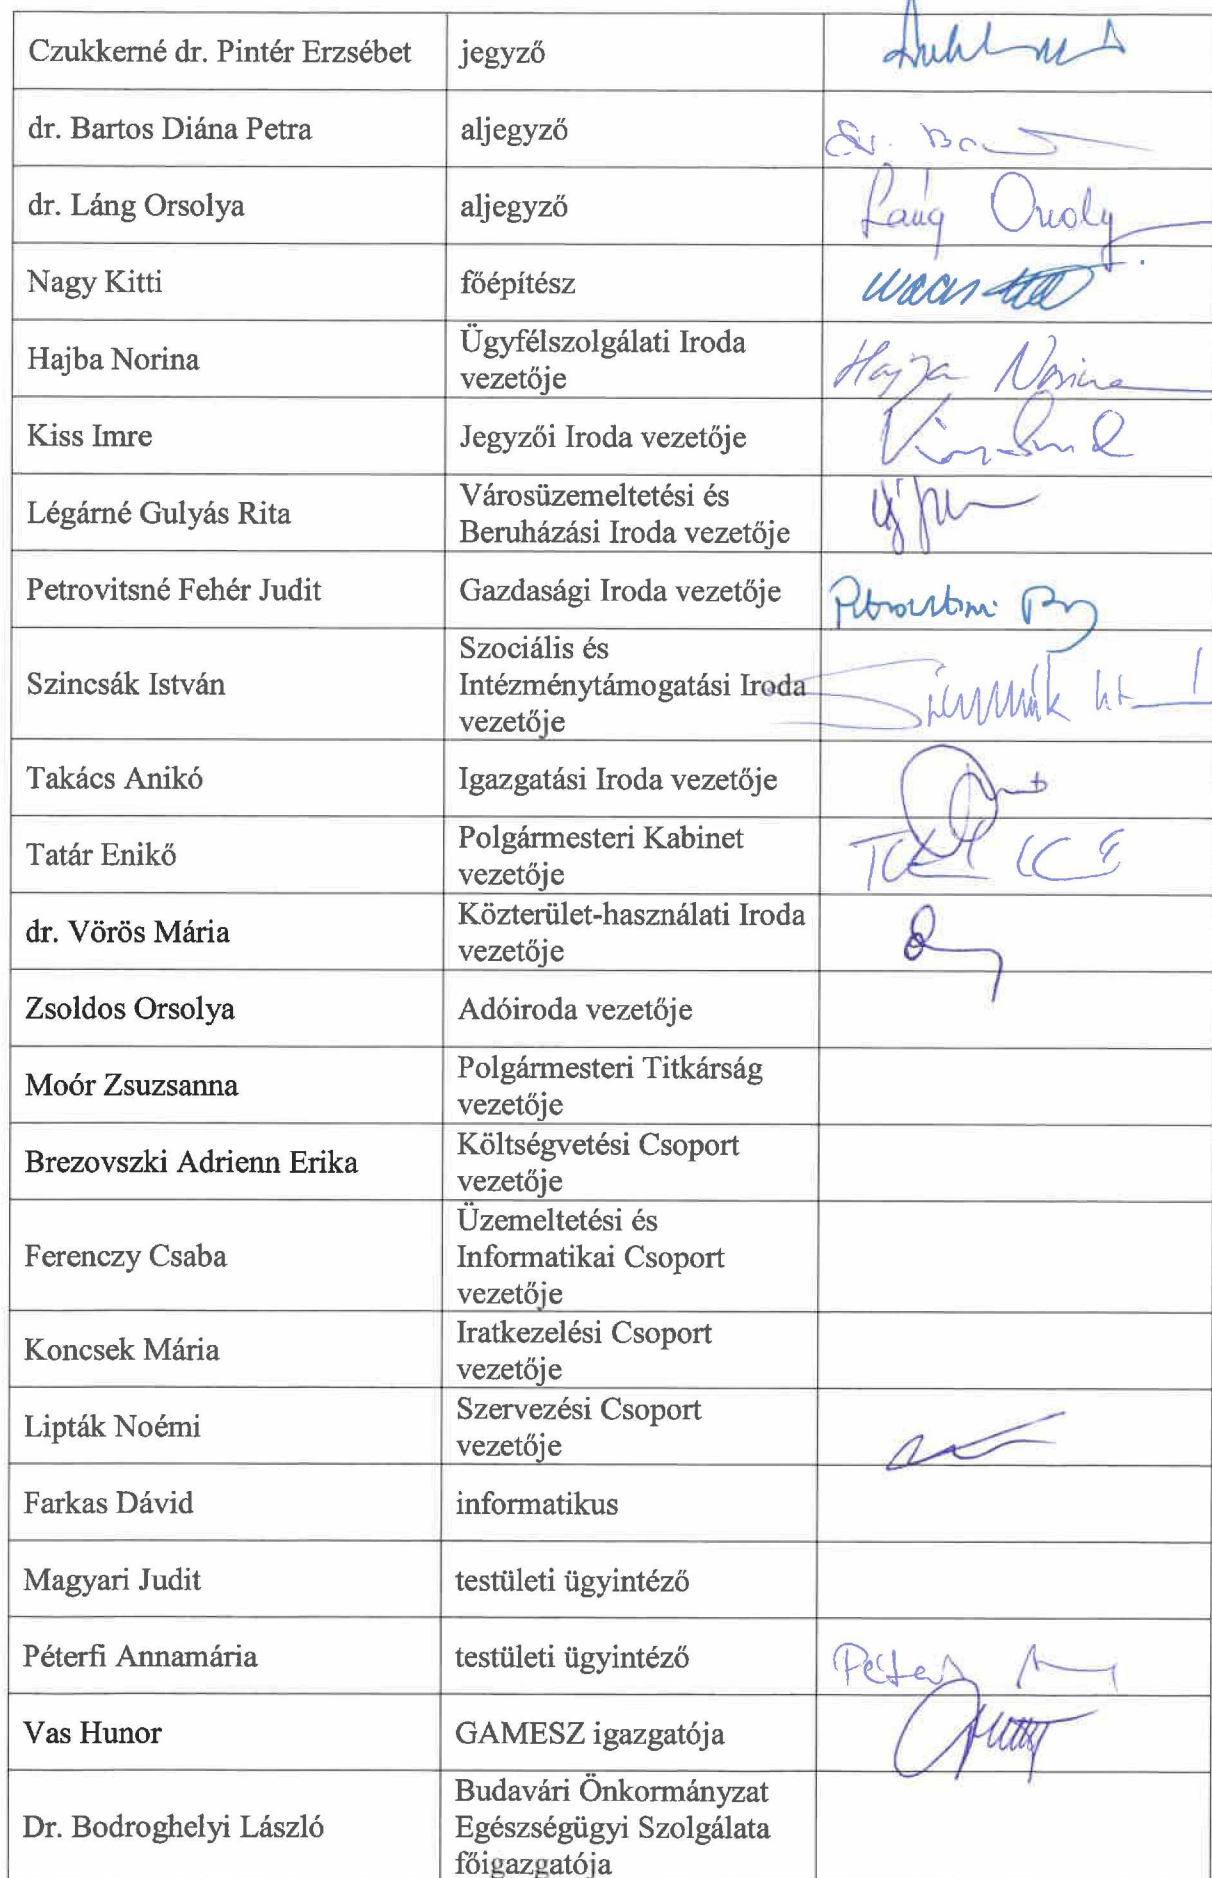 Czukkerné dr. Pintér Erzsébet jegyző
dr. Bartos Diána Petra aljegyző
dr. Láng Orsolya aljegyző Láng Orsoly
Nagy Kitti főépítész
Hajba Norina Ügyfélszolgálati Iroda
vezetője Hajba Norina
Kiss Imre Jegyzői Iroda vezetője
Légárné Gulyás Rita Városüzemeltetési és
Beruházási Iroda vezetője
Petrovitsné Fehér Judit Gazdasági Iroda vezetője
Szincsák István Szociális és
Intézménytámogatási Iroda
vezetője
Takács Anikó Igazgatási Iroda vezetője
Tatár Enikő Polgármesteri Kabinet
vezetője
dr. Vörös Mária Közterület-használati Iroda
vezetője
Zsoldos Orsolya Adóiroda vezetője
Moór Zsuzsanna Polgármesteri Titkárság
vezetője
Brezovszki Adrienn Erika Költségvetési Csoport
vezetője
Ferenczy Csaba Üzemeltetési és
Informatikai Csoport
vezetője
Koncsek Mária Iratkezelési Csoport
vezetője
Lipták Noémi Szervezési Csoport
vezetője
Farkas Dávid informatikus
Magyari Judit testületi ügyintéző
Péterfi Annamária testületi ügyintéző
Vas Hunor GAMESZ igazgatója
Dr. Bodroghelyi László Budavári Önkormányzat
Egészségügyi Szolgálata
főigazgatója